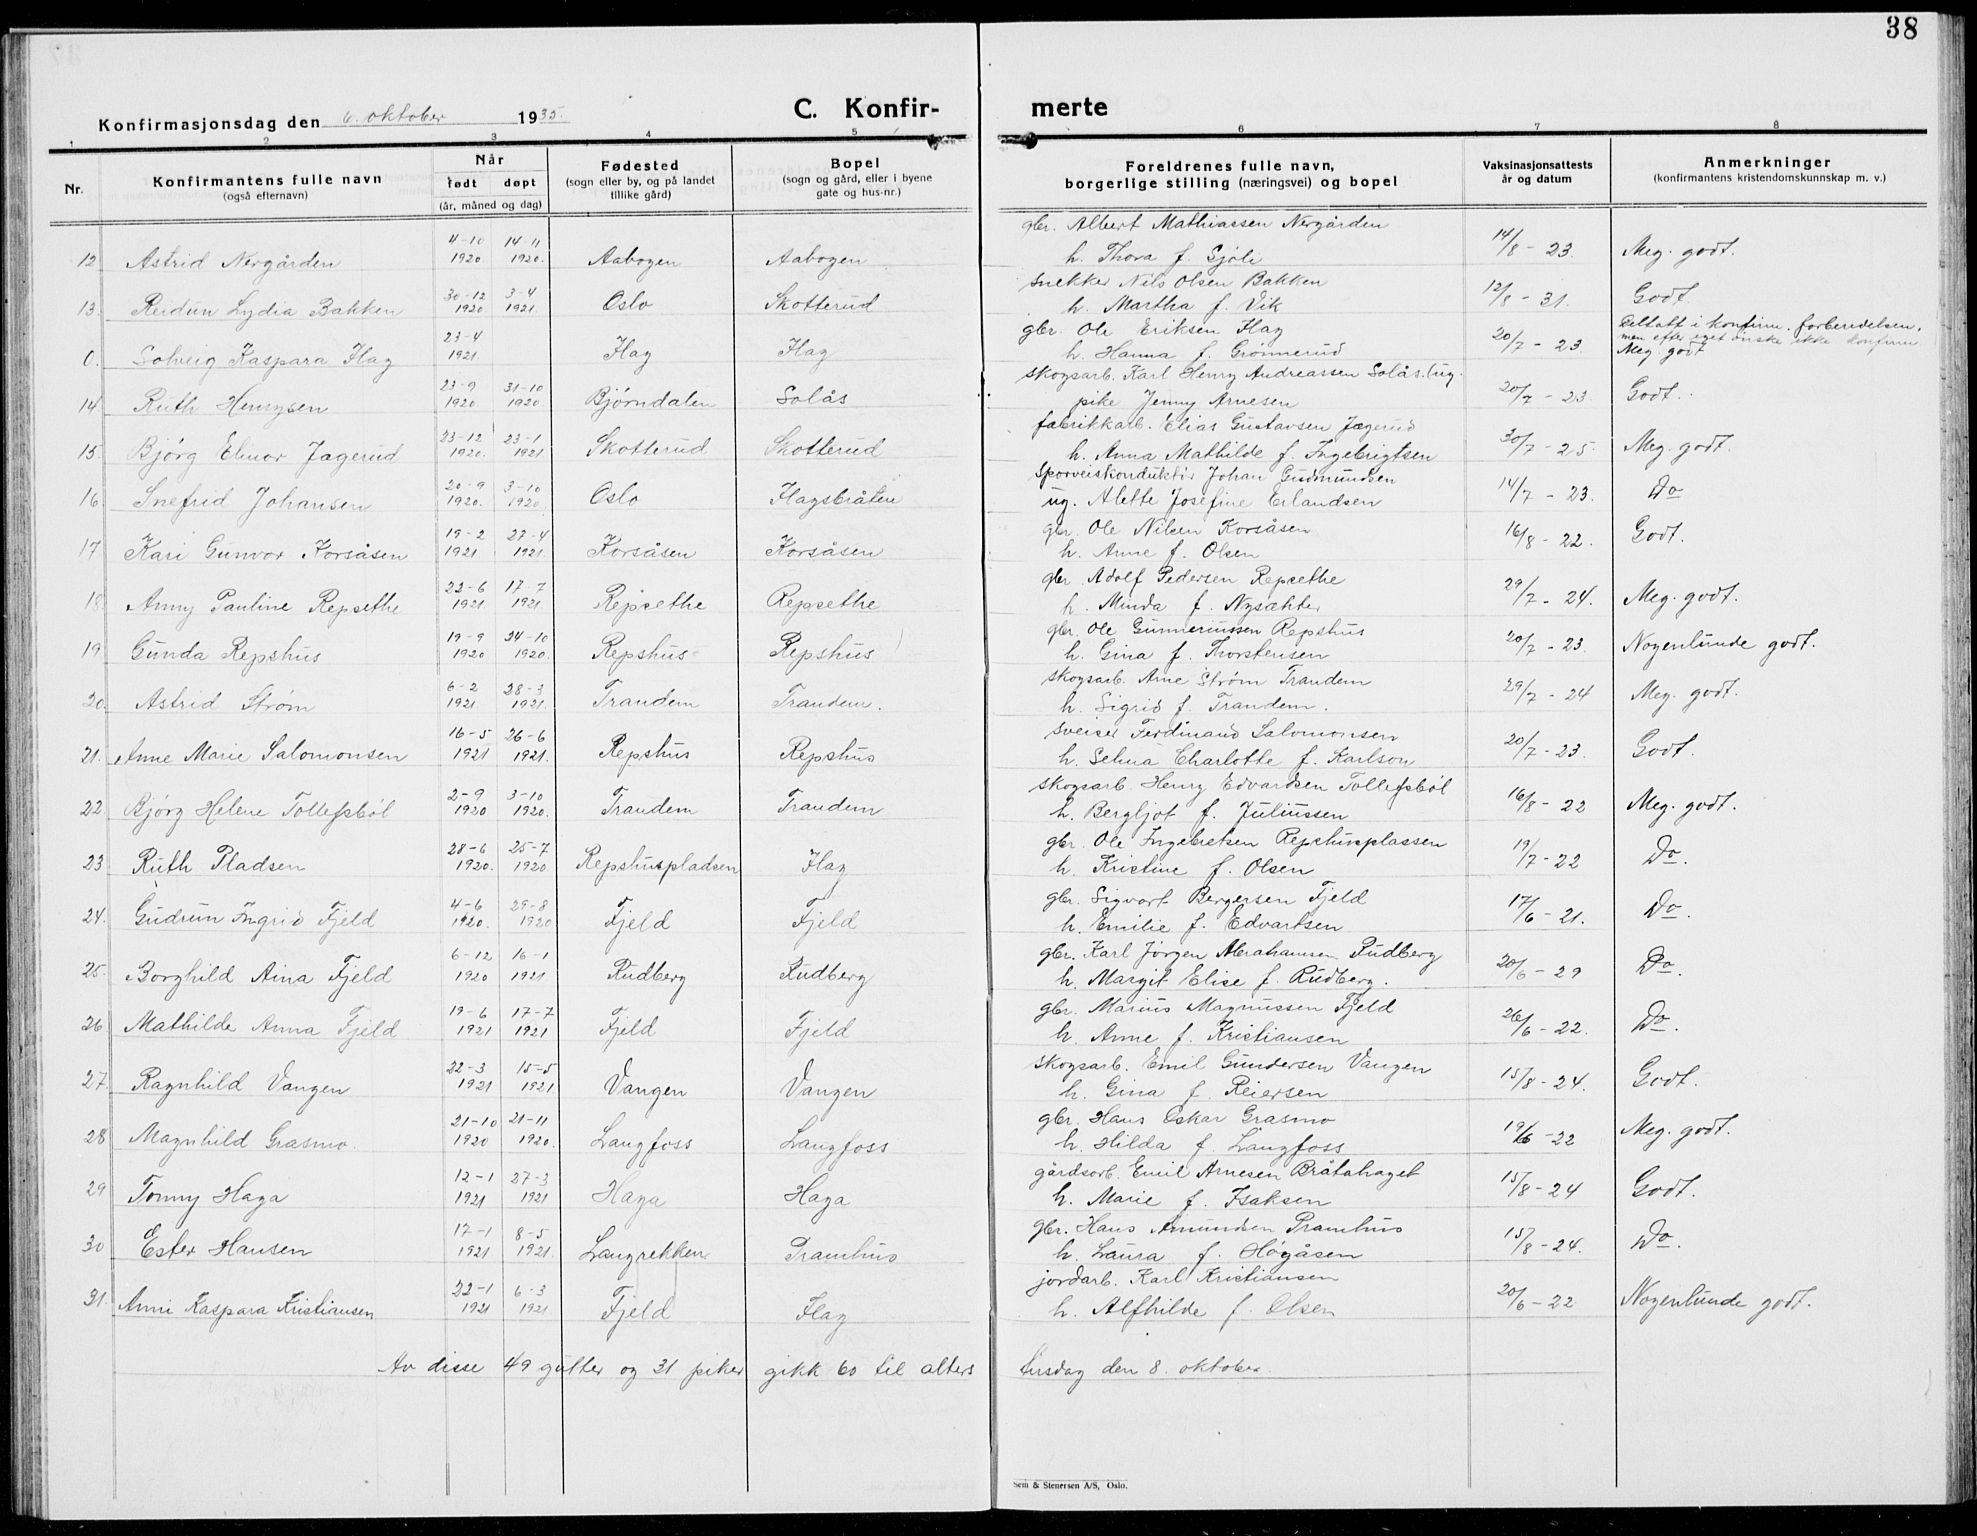 38
Konfirmasjonsdag den 6. oktober 1935.
C. Konfir-
merte
1 2 3 4 5 6 7 8
Nr.
Konfirmantens fulle navn
(også efternavn)
Når
født døpt
(år, måned og dag)
Fødested
(sogn eller by, og på landet
tillike gård)
Bopel
(sogn og gård, eller i byene
gate og hus-nr.)
Foreldrenes fulle navn,
borgerlige stilling (næringsvei) og bopel
Vaksinasjonsattests
år og datum
Anmerkninger
(konfirmantens kristendomskunnskap m. v.)
gbr. Albert Mathiassen Nergården
12 Astrid Nergården 4-10 1920 14-11 1920. Aabogen Aabogen h. Thora f. Sjøli 14/8 - 23. Meg. godt.
snekker Nils Olsen Bakken
13. Reidun Lydia Bakken 30-12 1920 3-4 1921 Oslo Skotterud h. Martha f. Vik 12/8 - 31. Godt.
gbr. Ole Eriksen Flag
0. Solveig Kaspara Flag 23-4 1921. Flag Flag h. Hanna f. Grønnerud 20/7 - 23. Deltatt i konfirm. forberedelsen,
men efter eget ønske ikke konfirm.
Meg godt
skogsarb. Karl Henry Andreassen Solås. (ug.
14. Ruth Henrysen 23-9 1920 31-10 1920 Bjørndalen Solås pike Jenny Arnesen 20/7 - 23 Godt.
fabrikkarb. Elias Gustavsen Jægerud
15. Bjørg Elinor Jægerud 23-12 1920. 23-1 1921 Skotterud Skotterud h. Anna Mathilde f. Ingebrigtsen 30/7 - 25. Meg. godt.
Sporveiskonduktør Johan Gudmundsen
16 Snefrid Johansen 20-9 1920. 3-10 1920. Oslo Flagsbråten ug. Alette Josefine Erlandsen 14/7 - 23. Do
gbr. Ole Nilsen Korsåsen
17 Kari Gunvor Korsåsen 19-2 1921 27-4 1921 Korsåsen Korsåsen h. Anne f. Olsen 16/8 - 22. Godt.
gbr. Adolf Pedersen Repsethe
18. Anny Pauline Repsethe 22-6 1921 17-7 1921 Repsethe Repsethe h. Minda f. Nysæhter 29/7 - 24. Meg. godt.
gbr. Ole Gunneriussen Repshus
19 Gunda Repshus 19-9 1920 24-10 1920. Repshus Repshus h. Gina f. Thorstensen 20/7 - 23. Nogenlunde godt.
skogsarb. Arne Strøm Trandem
20. Astrid Strøm 6-2 1921. 28-3 1921. Trandem Trandem. h. Sigrid f. Trandem. 29/7 - 24 Meg. godt.
sveiser Ferdinand Salomonsen
21. Anne Marie Salomonsen 16-5 1921 26-6 1921. Repshus Repshus h. Selma Charlotte f. Karlson 20/7 - 23. Godt.
skogsarb. Henry Edvardsen Tollefsbøl
22. Bjørg Helene Tollefsbøl 2-9 1920 3-10 1920. Trandem Trandem h. Bergljot f. Juliussen 16/8 - 22 Meg. godt.
gbr. Ole Ingebretsen Repshusplassen
23 Ruth Pladsen 28-6 1920. 25-7 1920 Repshuspladsen Flag h. Kristine f. Olsen 19/7 - 22 Do.
gbr. Sigvart Bergersen Fjeld
24. Gudrun Ingrid Fjeld 4-6 1920. 29-8 1920 Fjeld Fjeld h. Emilie f. Edvartsen 17/6 - 21. Do.
gbr. Karl Jørgen Abrahamsen Rudberg
25. Borghild Aina Fjeld 6-12 1920 16-1 1921 Rudberg Rudberg h. Margit Elise f. Rudberg. 20/6 - 29 Do.
gbr. Marius Magnussen Fjeld
26 Mathilde Anna Fjeld 19-6 1921 17-7 1921 Fjeld Fjeld h. Anne f. Kristiansen 26/6 - 22. Do.
skogsarb. Emil Gundersen Vangen
27. Ragnhild Vangen 22-3 1921 15-5 1921 Vangen Vangen h. Gina f. Reiersen 15/8 - 24. Godt.
gbr. Hans Oskar Grasmo
28 Magnhild Grasmo. 21-10 1920 21-11 1920. Langfoss Langfoss h. Hilda f. Langfoss 19/6 - 22 Meg. godt.
gårdsarb. Emil Arnesen Bråtahaget
29 Tonny Haga 12-1 1921 27-3 1921 Haga Haga h. Marie f. Isaksen 15/8 - 24 Godt.
gbr. Hans Amundsen Pramhus
30 Ester Hansen 17-1 1921 8-5 1921. Langrekken Pramhus h. Laura f. Høgåsen 15/8 - 24. Do.
jordarb. Karl Kristiansen
31. Anni Kaspara Kristiansen 22-1 1921 6-3 1921 Fjeld Flag h. Alfhilde f. Olsen 20/6 - 22 Nogenlunde godt.
Av disse 49 gutter og 31 piker gikk 60 til alters tirsdag den 8. oktober.
Sem & Stenersen A/S, Oslo.